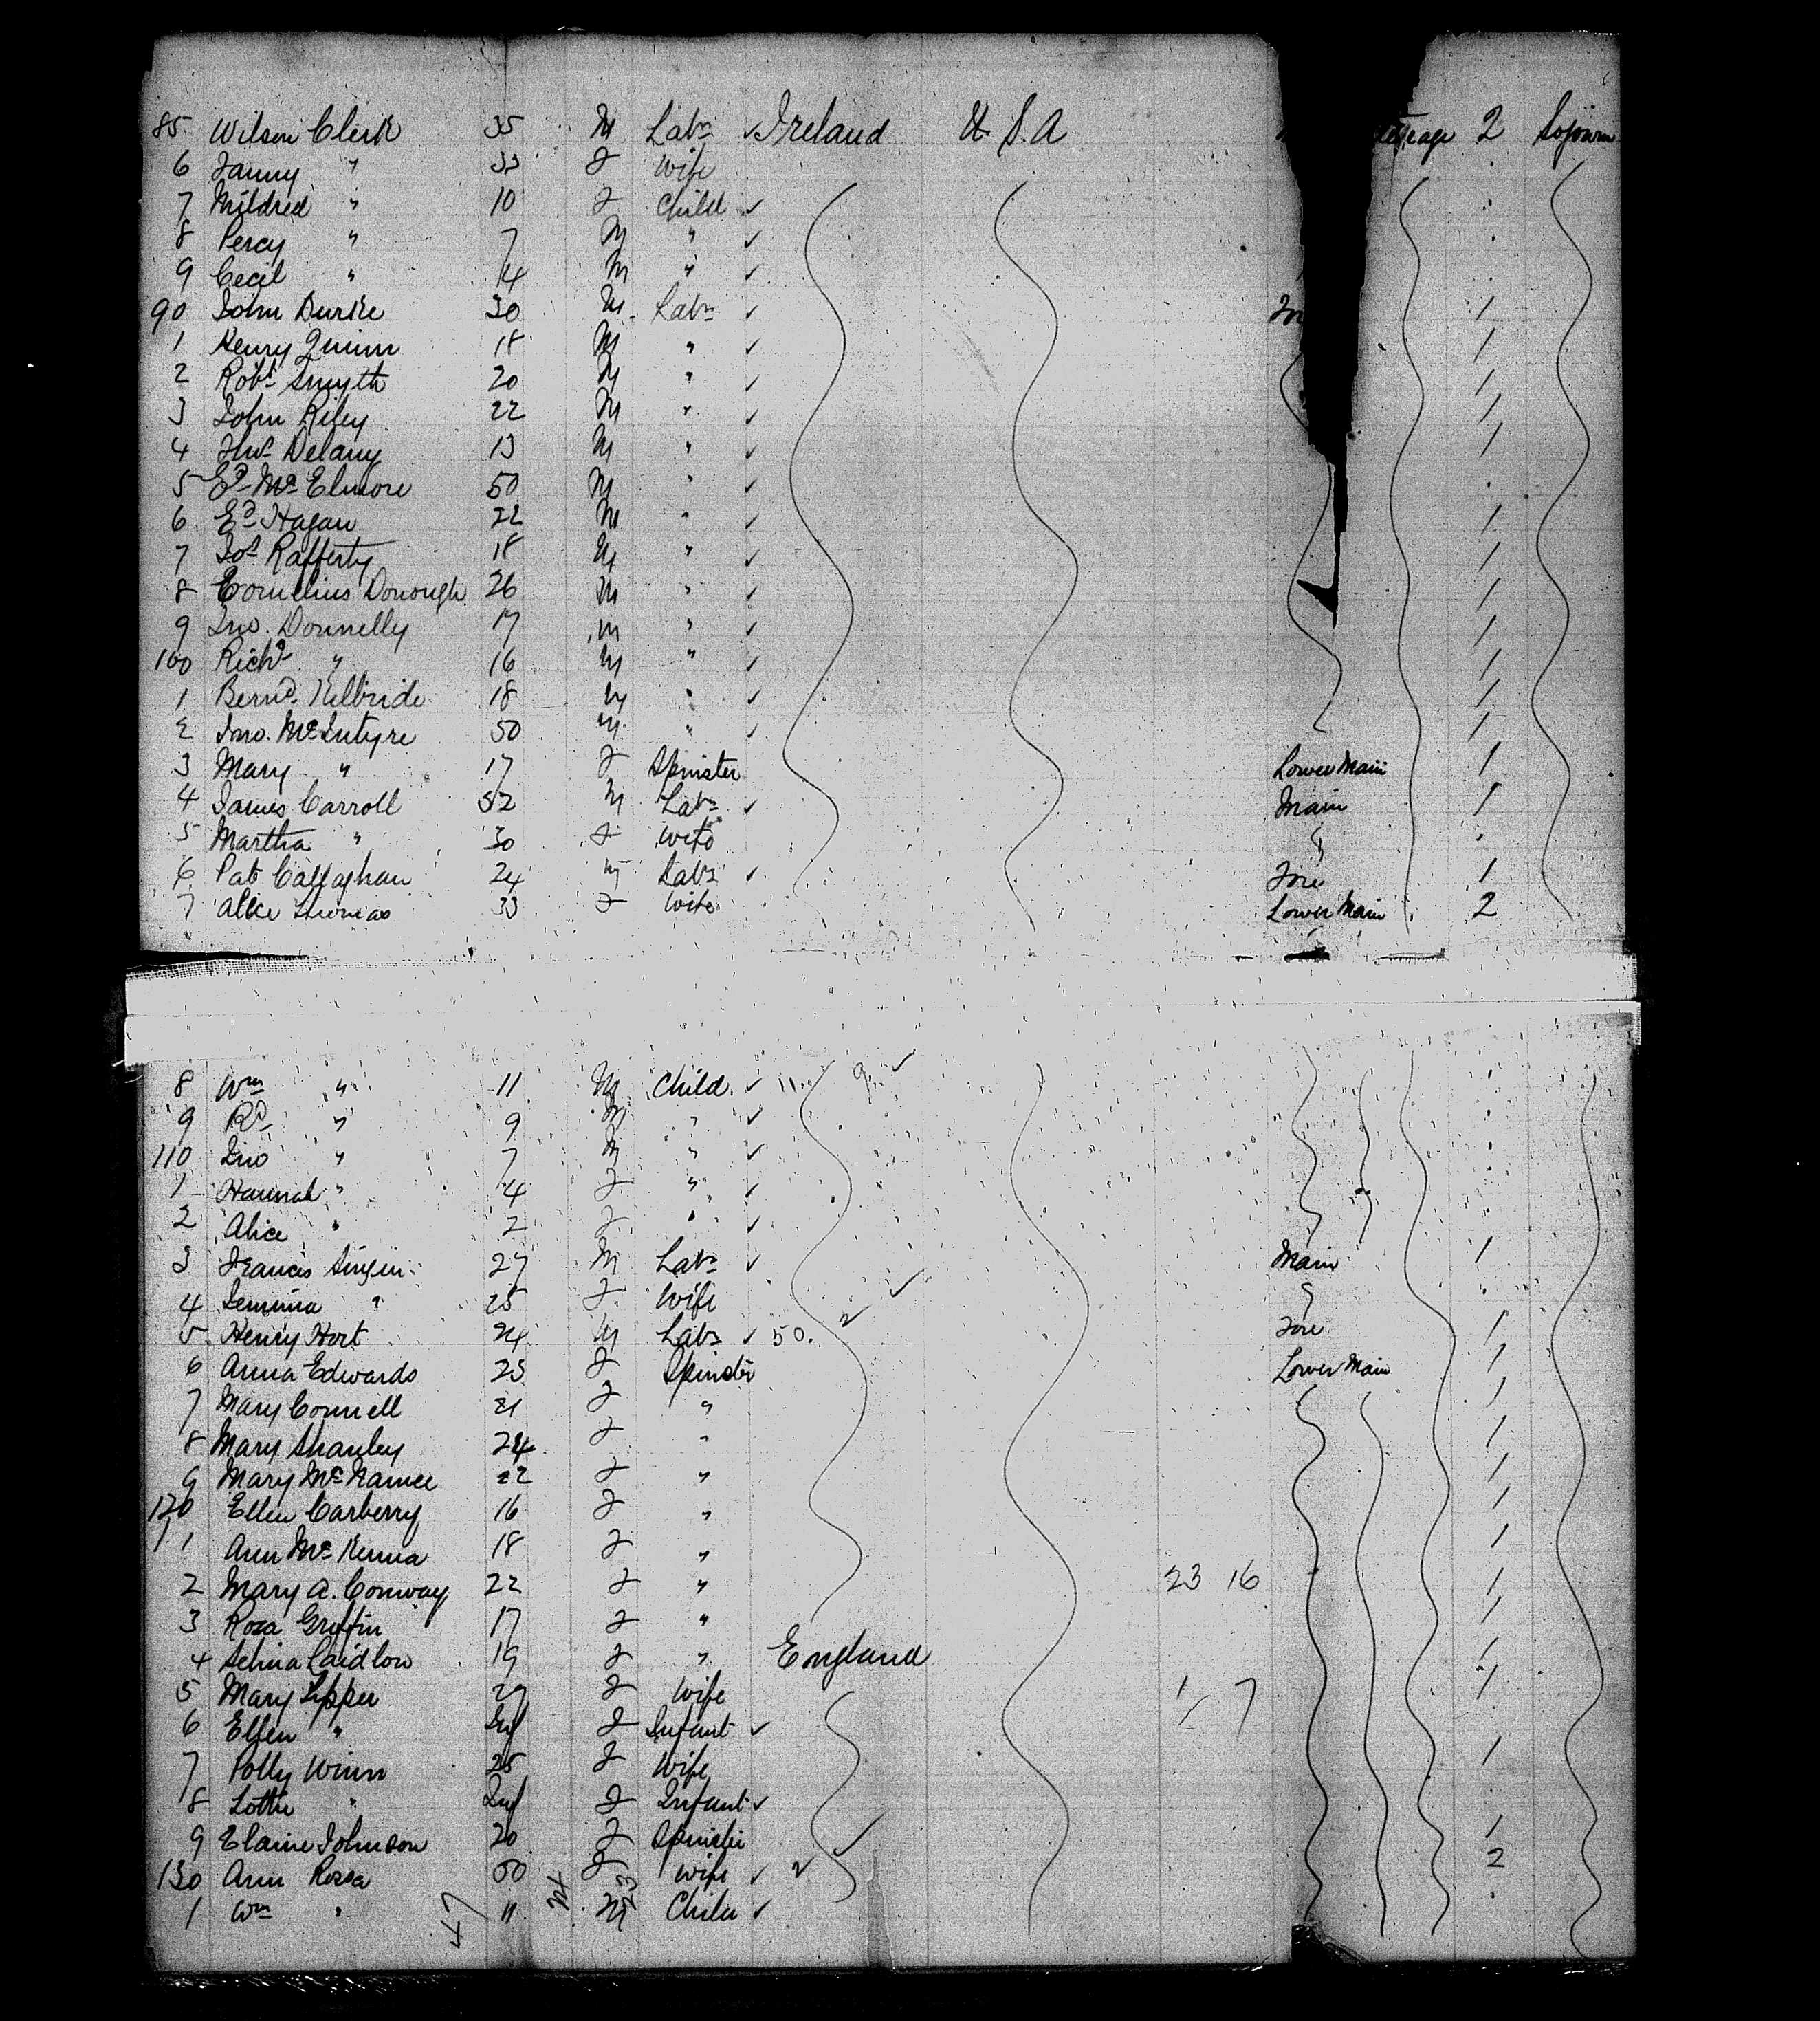 85 Wilson Clerk 35 M Labr ✓ Ireland U.S.A 2 Sojourn
6 Fanny " 33 F Wife
7 Mildred " 10 F Child ✓
8 Percy " 7 M " ✓
9 Cecil " 4 M " ✓
90 John Burke 30 M Labr ✓ 1
1 Henry Quinn 18 M " ✓ 1
2 Robt Smyth 20 M " ✓ 1
3 John Riley 22 M " ✓ 1
4 Thos Delany 13 M " ✓ 1
5 Ed McElmore 50 M " ✓
6 Ed Hagan 22 M " ✓ 1
7 Jos Rafferty 18 M " ✓ 1
8 Cornelius Donough 26 M " ✓ 1
9 Jno. Donnelly 17 M " ✓ 1
100 Richd " 16 M " ✓ 1
1 Bernd. Kilbride 18 M " ✓ 1
2 Jno. McIntyre 50 M " ✓ 1
3 Mary " 17 F Spinster Lower Main 1
4 James Carroll 52 M Labr ✓ Main 1
5 Martha " 30 F Wife "
6 Pat Callaghan 24 M Labr ✓ Fore 1
7 Alice Thomas 33 F Wife Lower Main 2
8 Wm " 11 M Child ✓ 11
9 Rd " 9 M " ✓
110 Jno " 7 M " ✓
1 Hannah " 4 F " ✓
2 Alice " 2 F " ✓
3 Francis 27 M Labr ✓ Main 1
4 Jemima " 25 F Wife
5 Henry Hort 24 M Labr ✓ 50. Fore 1
6 Anna Edwards 25 F Spinster Lower Main 1
7 Mary Connell 21 F " 1
8 Mary Shanley 24 F " 1
9 Mary McNamee 22 F " 1
120 Ellen Carberry 16 F " 1
1 Ann McKenna 18 F " 1
2 Mary A. Conway 22 F " 23 16 1
3 Rosa Griffin 17 F " 1
4 Selina Laidlow 19 F " England 1
5 Mary Lipper 27 F Wife 1 7 1
6 Ellen " Inf F Infant ✓
7 Polly Winn 25 F Wife 1
8 Lottie " Inf F Infant ✓
9 Elaine Johnson 20 F Spinster 1
130 Ann Rossa 50 F Wife ✓ 2
1 Wm " 11 M Child ✓
47 24 23